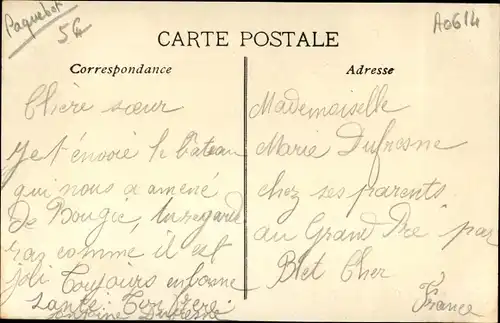 Paquebot
5€
A0614
CARTE POSTALE
Correspondance
Chère sœur
Je t'envoie le bateau
qui nous a amené
De Bougie, tu regard
ras comme il est
joli Toujours en bonne
Santé. Ton frère.
Dufresne
Adresse
Mademoiselle
Marie Dufresne
chez ses parents
au Grand Pré par
Blet Cher
France